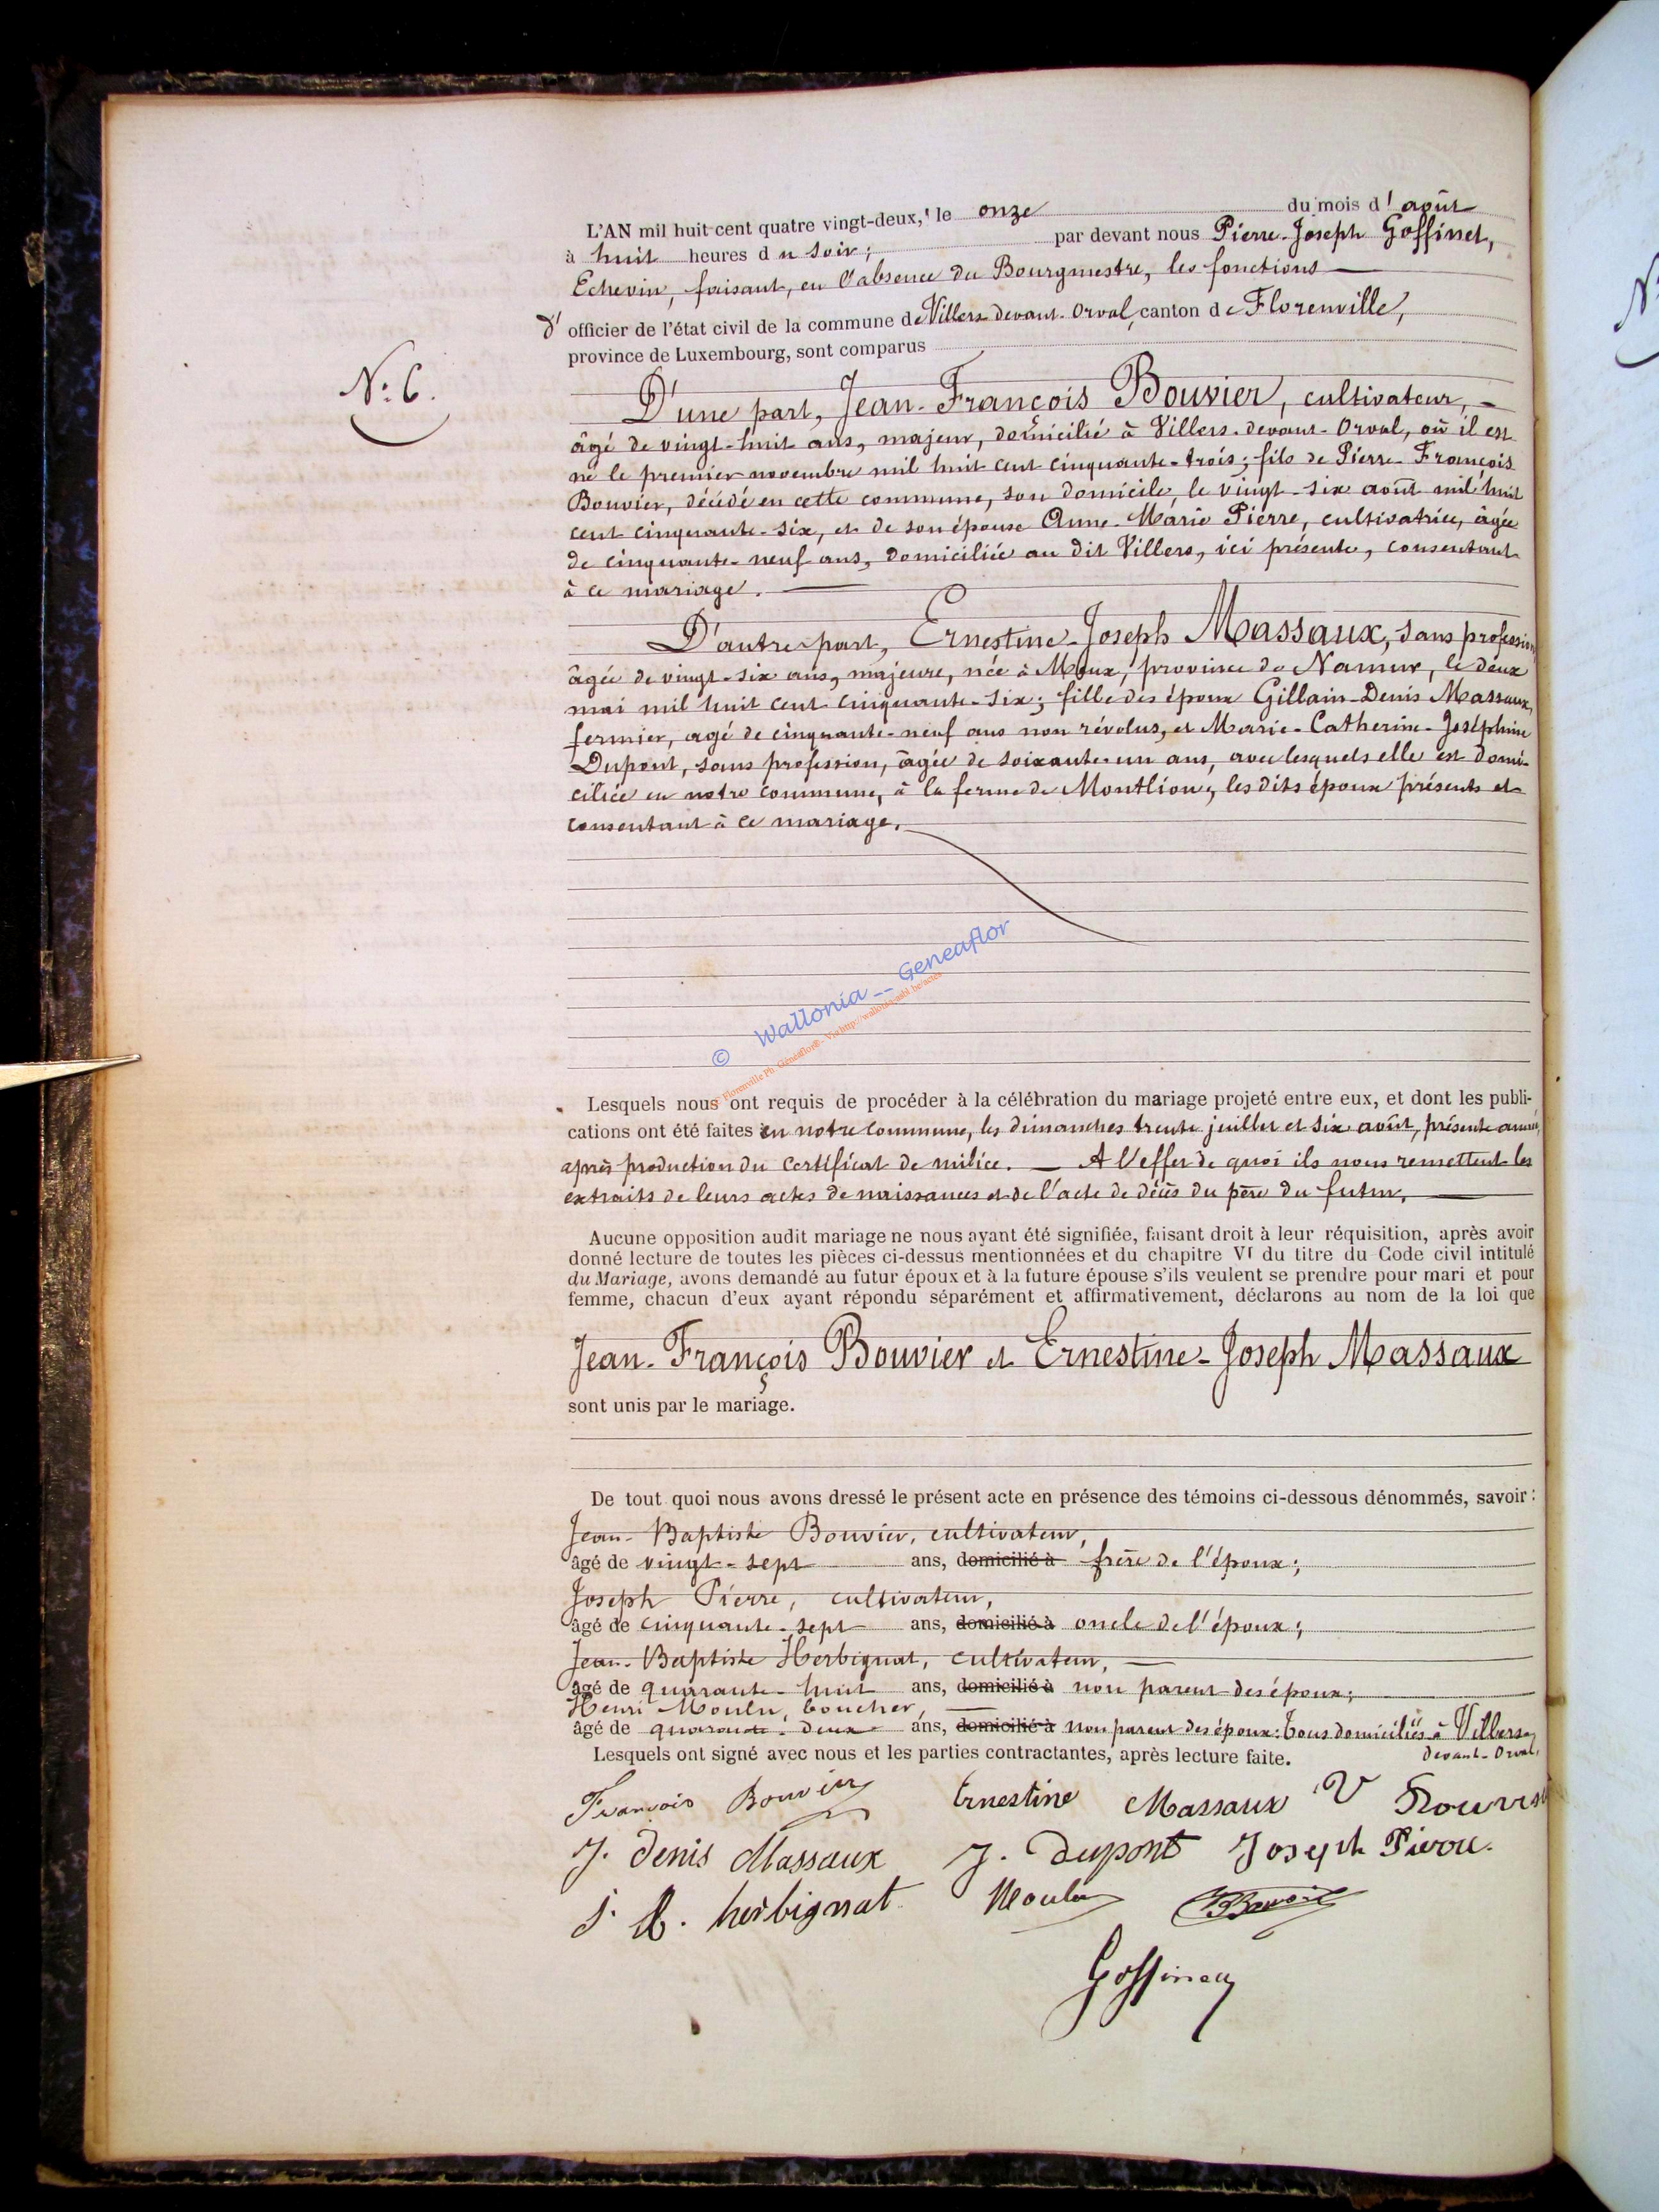 L'AN mil huit cent quatre vingt-deux, le onze du mois d'août
à huit heures du soir; par devant nous Pierre-Joseph Goffinet,
Echevin, faisant, en l'absence du Bourgmestre, les fonctions
d' officier de l'état civil de la commune de Villers-devant-Orval, canton de Florenville,
province de Luxembourg, sont comparus
N: 6.
D'une part, Jean-François Bouvier, cultivateur,
âgé de vingt-huit ans, majeur, domicilié à Villers-devant-Orval, où il est
né le premier novembre mil huit cent cinquante-trois; fils de Pierre-François
Bouvier, décédé en cette commune, son domicile, le vingt-six août mil huit
cent cinquante-six, et de son épouse Anne-Marie Pierre, cultivatrice, âgée
de cinquante-neuf ans, domiciliée au dit Villers, ici présente, consentant
à ce mariage.
D'autre part, Ernestine-Joseph Massaux, sans profession,
âgée de vingt-six ans, majeure, née à Meux, province de Namur, le deux
mai mil huit cent cinquante-six; fille des époux Gillain-Denis Massaux,
fermier, agé de cinquante-neuf ans non révolus, et Marie-Catherine-Joséphine
Dupont, sans profession, âgée de soixante-un ans, avec lesquels elle est domi-
ciliée en notre commune, à la ferme de Montlion, les dits époux présents et
consentant à ce mariage.
© Wallonia -- Geneaflor
Lesquels nous ont requis de procéder à la célébration du mariage projeté entre eux, et dont les publi-
cations ont été faites en notre commune, les dimanches trente juillet et six août, présente année,
après production du certificat de milice. — A l'effet de quoi ils nous remettent les
extraits de leurs actes de naissances et de l'acte de décès du père du futur.
Aucune opposition audit mariage ne nous ayant été signifiée, faisant droit à leur réquisition, après avoir
donné lecture de toutes les pièces ci-dessus mentionnées et du chapitre VI du titre du Code civil intitulé
du Mariage, avons demandé au futur époux et à la future épouse s'ils veulent se prendre pour mari et pour
femme, chacun d'eux ayant répondu séparément et affirmativement, déclarons au nom de la loi que
Jean-François Bouvier et Ernestine-Joseph Massaux
sont unis par le mariage.
De tout quoi nous avons dressé le présent acte en présence des témoins ci-dessous dénommés, savoir:
Jean-Baptiste Bouvier, cultivateur,
âgé de vingt-sept ans, domicilié à frère de l'époux;
Joseph Pierre, cultivateur,
âgé de cinquante-sept ans, domicilié à oncle de l'époux;
Jean-Baptiste Herbignat, cultivateur,
âgé de quarante-huit ans, domicilié à non parent des époux;
Henri Moulu, boucher,
âgé de quarante-deux ans, domicilié à non parent des époux: tous domiciliés à Villers-
devant-Orval.
Lesquels ont signé avec nous et les parties contractantes, après lecture faite.
François Bouvier Ernestine Massaux V
J. Denis Massaux J. Dupont Joseph Pierre.
J. B. herbignat Moulu JBBouvier
Goffinet